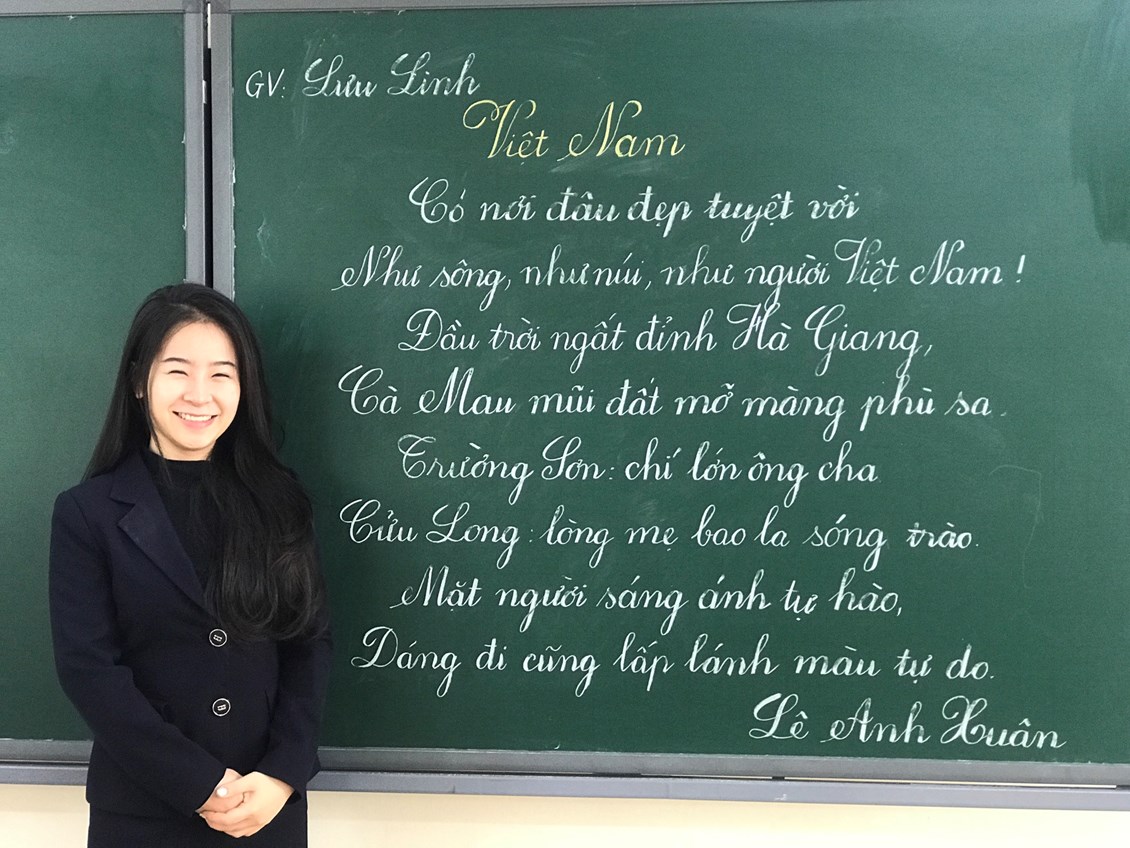 GV: Lưu Linh
Việt Nam
Có nơi đâu đẹp tuyệt vời
Như sông, như núi, như người Việt Nam !
Đầu trời ngất đỉnh Hà Giang,
Cà Mau mũi đất mỡ màng phù sa.
Trường Sơn: chí lớn ông cha
Cửu Long: lòng mẹ bao la sóng trào.
Mặt người sáng ánh tự hào,
Dáng đi cũng lấp lánh màu tự do.
Lê Anh Xuân